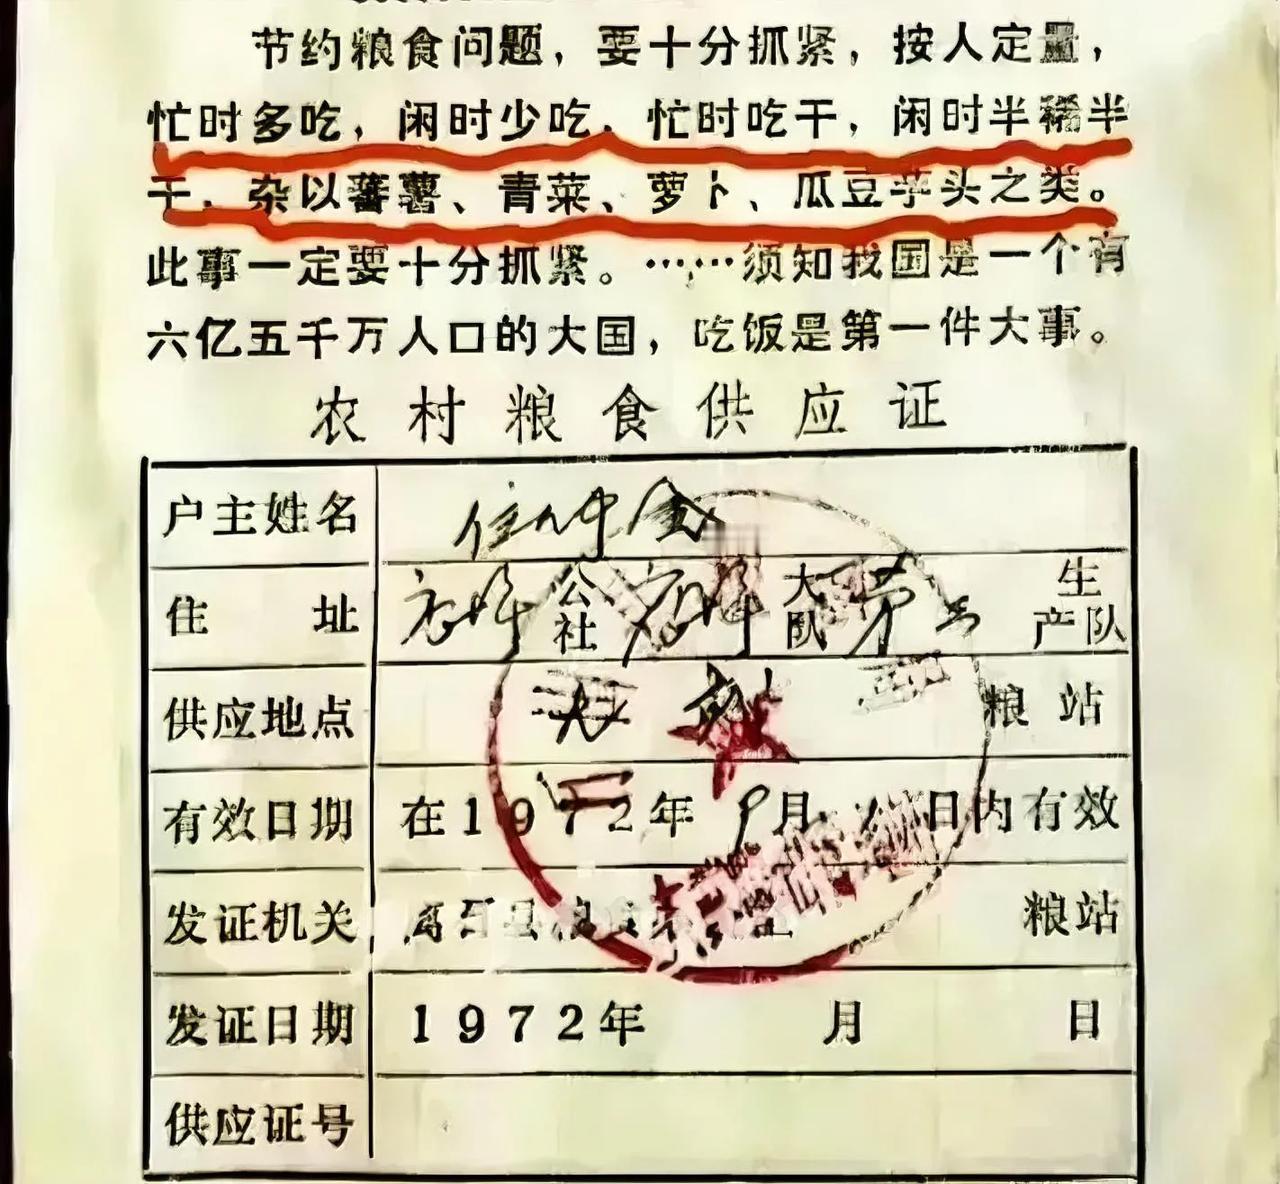 节约粮食问题，要十分抓紧，按人定量，
忙时多吃，闲时少吃．忙时吃干，闲时半稀半
干．杂以蕃薯、青菜、萝卜、瓜豆芋头之类。
此事一定要十分抓紧。……须知我国是一个有
六亿五千万人口的大国，吃饭是第一件大事。
农村粮食供应证
户主姓名
住址 公社 大队 生产队
供应地点 粮站
有效日期 在1972年9月 日内有效
发证机关 粮站
发证日期 1972年 月 日
供应证号